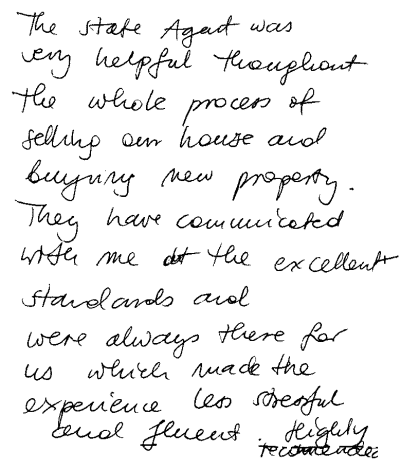 The state Agent was
very helpful thoughout
the whole process of
selling our house and
buying new property.
They have communicated
with me at the excellent
standards and
were always there for
us which made the
experience less stressful
and fluent. Highly
recommended